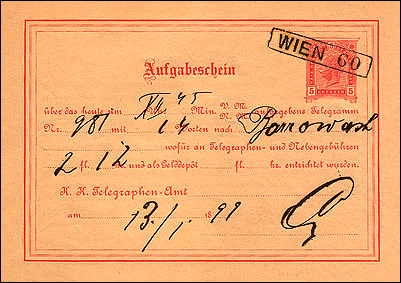 WIEN 60
Aufgabeschein
5 5
über das heute um XII Uhr 45 Min. V. M. N. M. aufgegebene Telegramm
Nr. 981 mit 14 Worten nach
wofür an Telegraphen- und Nebengebühren
2 fl. 12 kr. und als Gelddepôt fl. kr. entrichtet wurden.
K. K. Telegraphen-Amt
am 13/1 1899